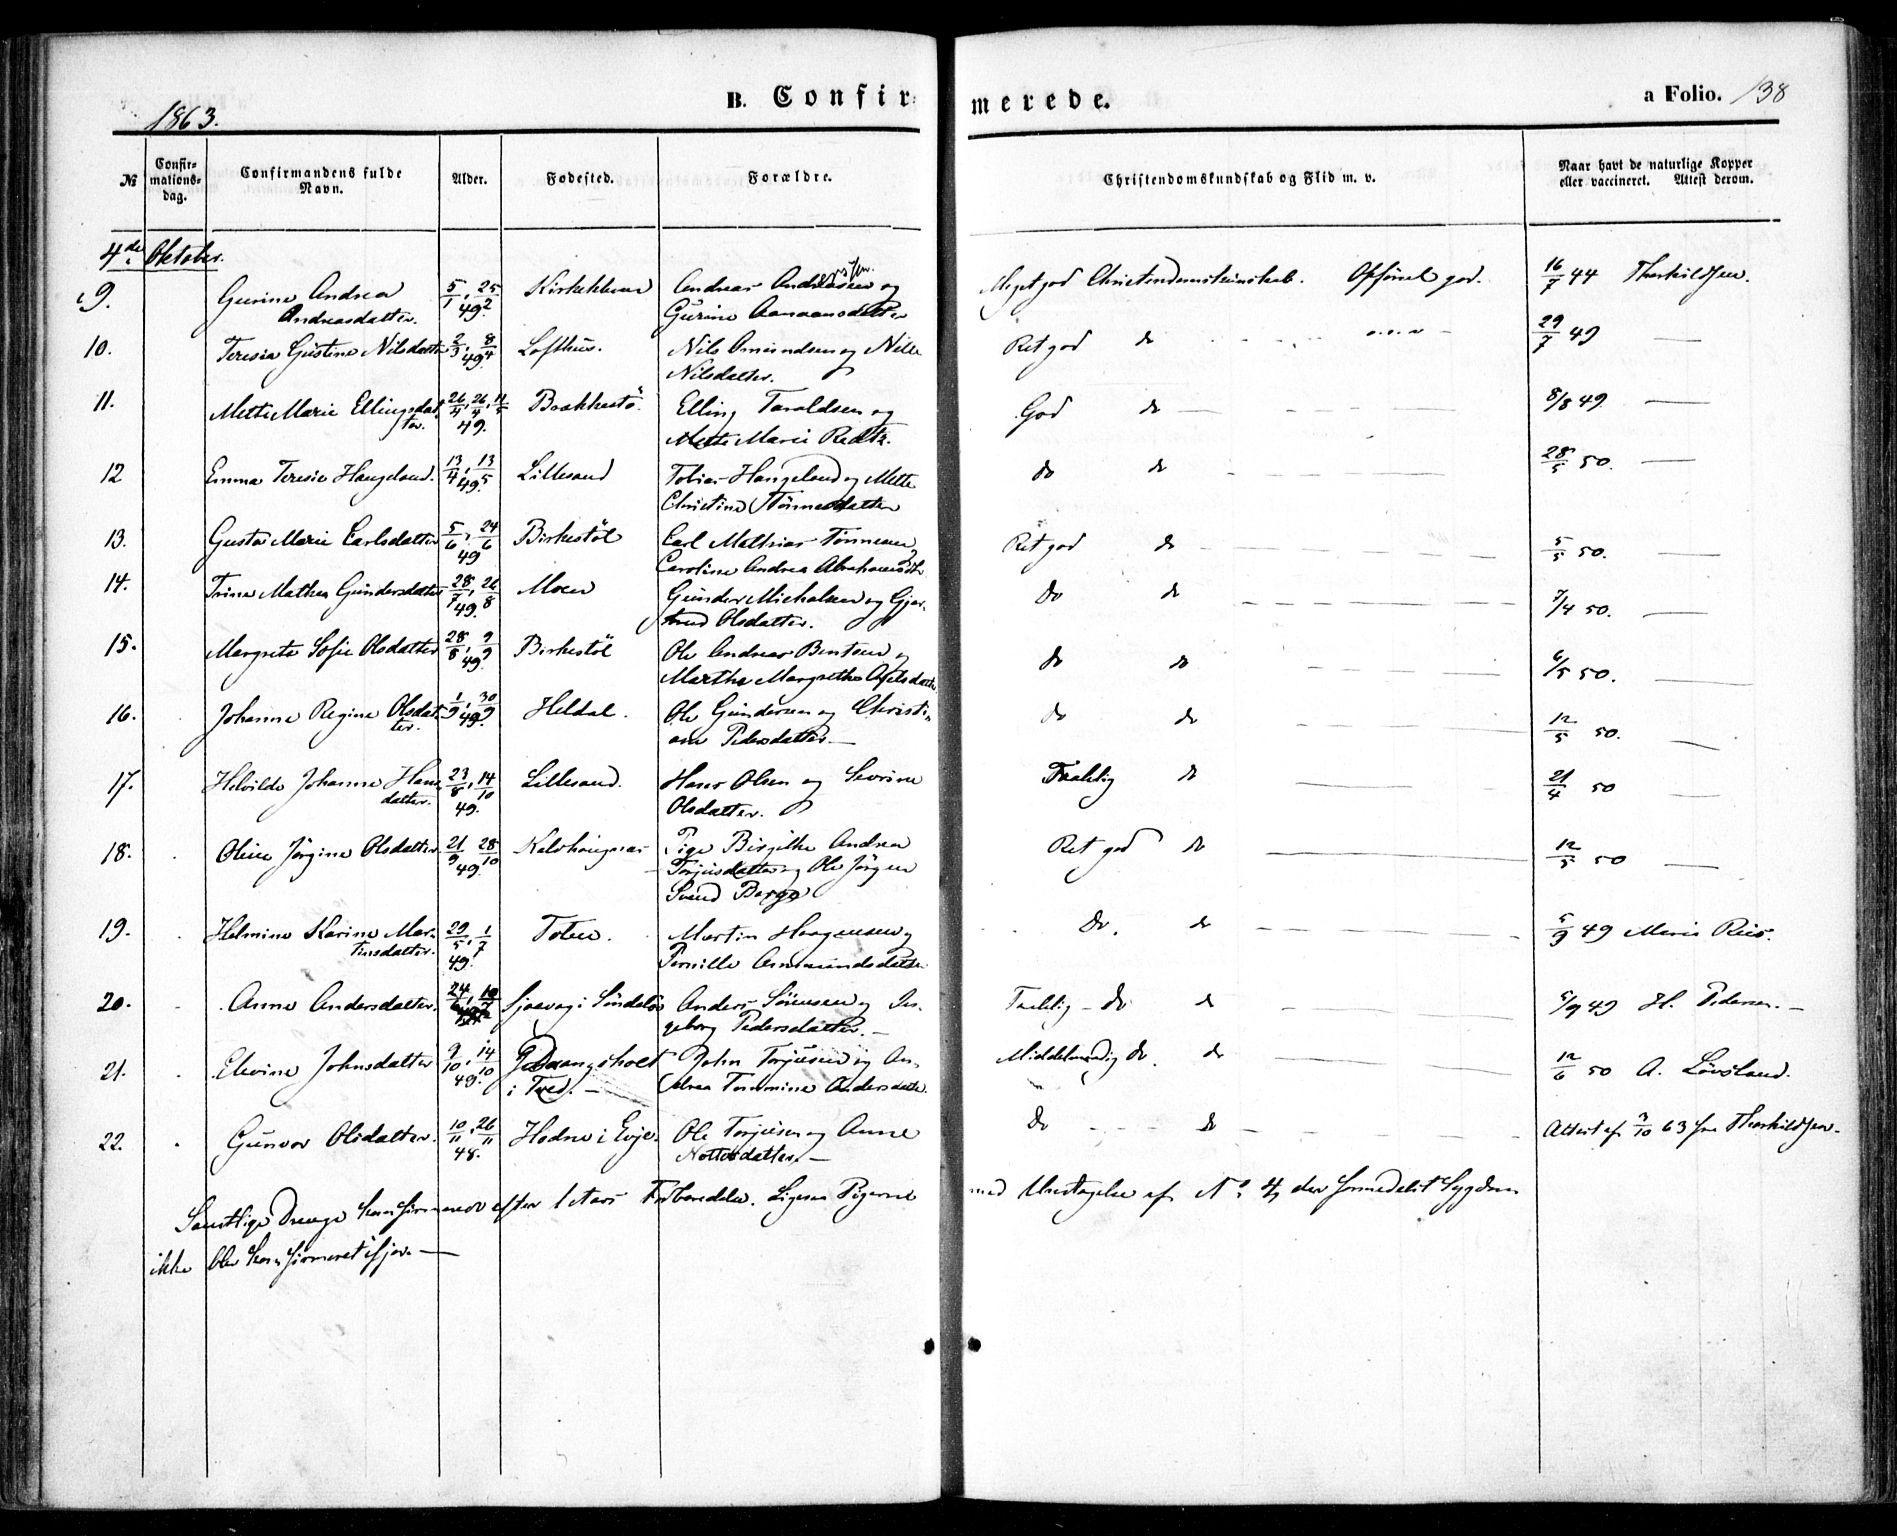 1863.
B. Confir-
merede.
a Folio. 138
№
Confir-
mations-
dag.
Confirmandens fulde
Navn.
Alder.
Fødested.
Forældre.
Christendomskundskab og Flid m. v.
Naar havt de naturlige Kopper
eller vaccineret. Attest derom.
4de Oktober.
9. Gurine Andrea 5/1, 25/2 Andreas og Meget god Christendomskundskab. Opførsel god. 16/7 44 Thorkildsen.
Andreasdatter. 49 Gurine
10. Teresia Gustine Nilsdatter 2/3, 8/4 Lofthus. Nils Omundsen og Nille Ret god do 29/7 49 —
49 Nilsdatter.
11. Mette Marie Ellingsdat- 26/4, 26/4, 11/5 Brækkestö. Elling Taraldsen og God do — 8/8 49 —
ter. 49. Mette Marie
12 Emma Teresie Haugeland. 13/4, 13/5 Lillesand Tobias Haugeland og Mette do do 28/5 50. —
49. Christine Tönnesdatter
13. Gusta Marie Carlsdatter 5/6, 24/6 Birkestöl Carl Mathias Tönnesen Ret god do 5/5 50. —
49 Caroline Andrea
14. Trine Mathea Gundersdatter 28/7, 26/8 Moen Gunder Michalsen og Gjer- Do do 7/4 50. —
49. trud Olsdatter.
15. Margrete Sofie Olsdatter 28/8, 9/9 Birkestöl Ole Andreas Bentsen og do do 6/5 50. —
49. Marthe Margrethe Axelsdatter
16. Johanne Regine Olsdat- 1/9, 30/9 Heldal. Ole Gundersen og Christi- do do 12/5 50. —
ter. 49 ane Pedersdatter —
17. Helvilde Johanne Hans- 23/8, 14/10 Lillesand. Hans Olsen og Severine Taalelig do 21/4 50 —
datter. 49. Olsdatter.
18. Oline Jörgine Olsdatter 21/9 28/10 Pige Birgithe Andrea Ret god do 12/5 50 —
49. Torjusdatter og Ole Jörgen
Svend Berge
19. Helmine Karine Mar- 29/5, 1/7 Toten. Martin Haagensen og Do. do 5/9 49 Maria
tinsdatter. 49. Pernille Ammundsdatter
20. Anne Andersdatter. 24/6, 10/7 i Söndeløv Anders Sörensen og In- Taalelig — do do 5/9 49 H. Pedersen. —
geborg Pedersdatter. —
21. Elevine Johnsdatter 9/10, 14/10 John Torjusen og An- Middelmaadig do. do 12/6 50 A. Lövsland.
49. i Tved. — drea Tommine Andersdatter.
22. Gunvor Olsdatter. 10/11, 26/11 Hodne i Evje. Ole Torjusen og Anne Do do Attest af 3/10 63 fra Thorkildsen.
48. Nottosdatter. —
Samtlige Drenge konfirmerede efter 1 Aars Forberedelse. Ligesaa Pigerne med Undtagelse af No 4, der formedelst Sygdom
ikke blev konfirmeret ifjor. —